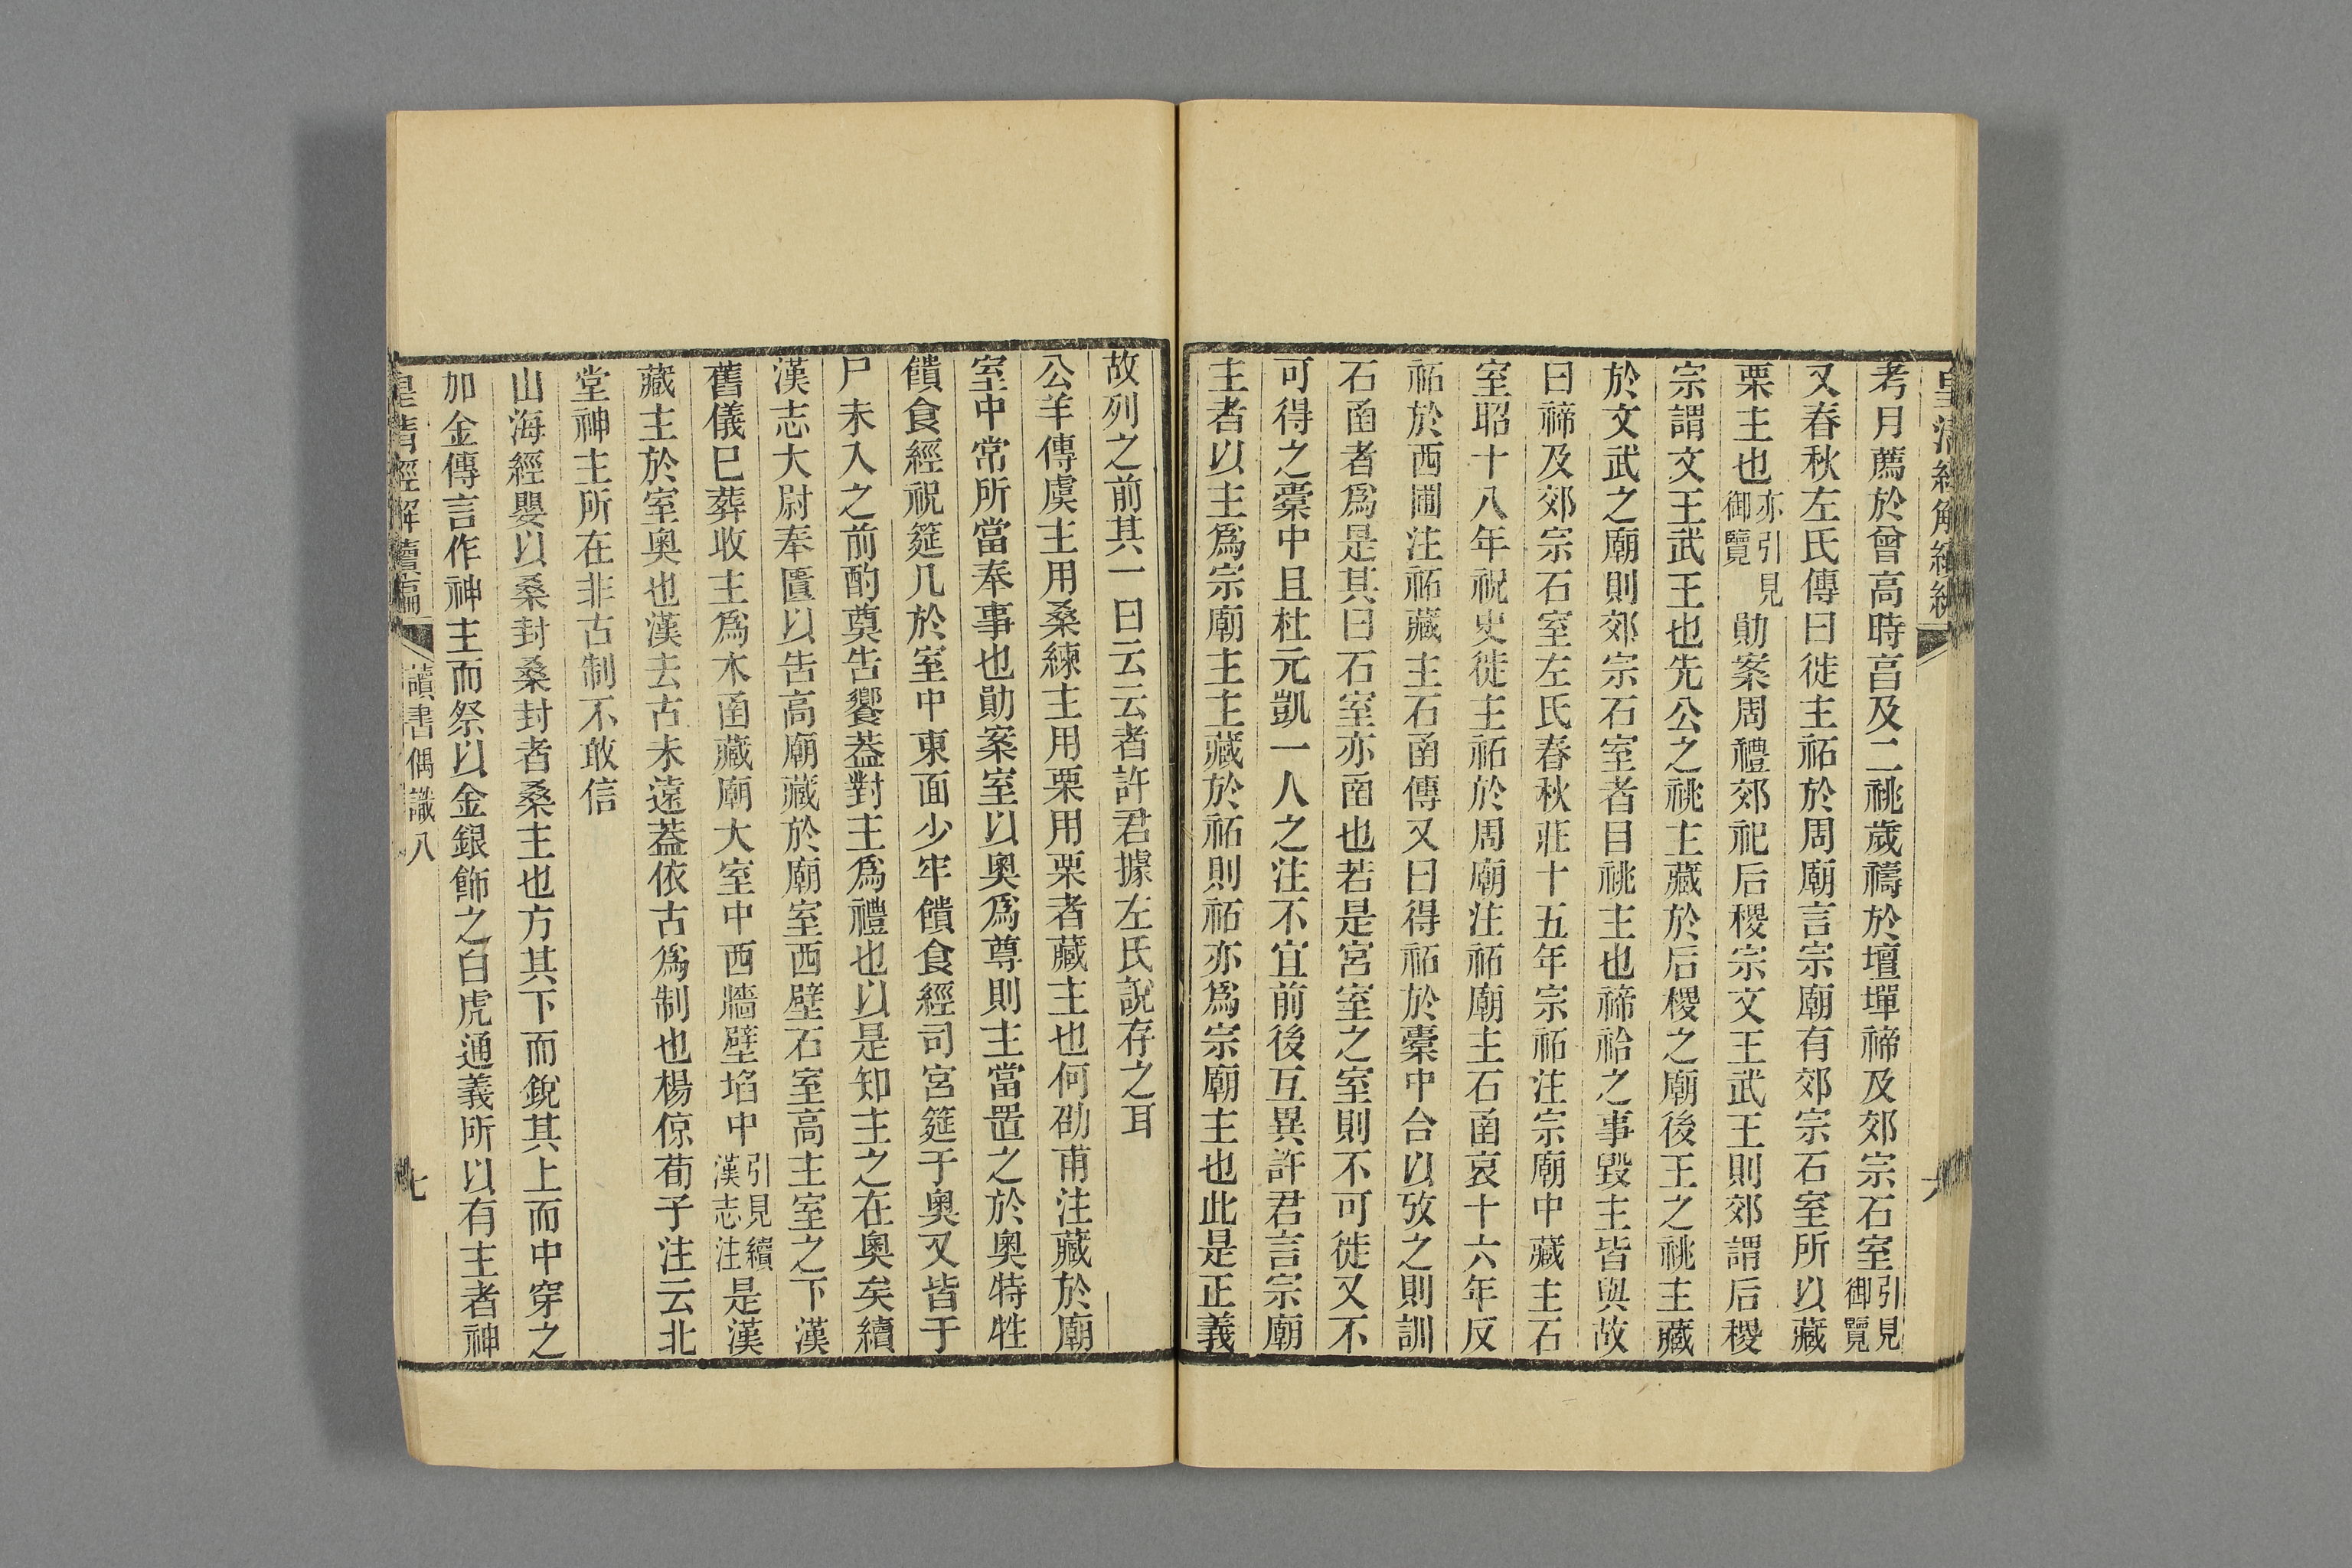 皇清經解續編
六
考月薦於曾高時亯及二祧歲禱於壇墠禘及郊宗石室引見御覽
又春秋左氏傳曰徙主祏於周廟言宗廟有郊宗石室所以藏
栗主也亦引見御覽勛案周禮郊祀后稷宗文王武王則郊謂后稷
宗謂文王武王也先公之祧主藏於后稷之廟後王之祧主藏
於文武之廟則郊宗石室者目祧主也禘祫之事毀主皆與故
曰禘及郊宗石室左氏春秋莊十五年宗祏注宗廟中藏主石
室昭十八年祝史徙主祏於周廟注祏廟主石函哀十六年反
祏於西圃注祏藏主石函傳又曰得祏於橐中合以攷之則訓
石函者爲是其曰石室亦函也若是宮室之室則不可徙又不
可得之橐中且杜元凱一人之注不宜前後互異許君言宗廟
主者以主爲宗廟主主藏於祏則祏亦爲宗廟主也此是正義
故列之前其一曰云云者許君據左氏說存之耳
公羊傳虞主用桑練主用栗用栗者藏主也何劭甫注藏於廟
室中常所當奉事也勛案室以奧爲尊則主當置之於奧特牲
饋食經祝筵几於室中東面少牢饋食經司宮筵于奧又皆于
尸未入之前酌奠告饗葢對主爲禮也以是知主之在奧矣續
漢志大尉奉匱以告高廟藏於廟室西壁石室高主室之下漢
舊儀巳葬收主爲木函藏廟大室中西牆壁埳中引見續漢志注是漢
藏主於室奧也漢去古未遠葢依古爲制也楊倞荀子注云北
堂神主所在非古制不敢信
山海經嬰以桑封桑封者桑主也方其下而銳其上而中穿之
加金傳言作神主而祭以金銀飾之白虎通義所以有主者神
皇清經解續編
讀書偶識八
七